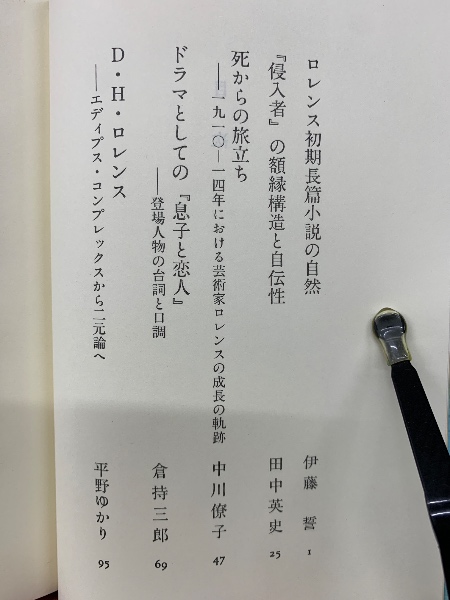 ロレンス初期長篇小説の自然 伊藤 誓 1
『侵入者』の額縁構造と自伝性 田中英史 25
死からの旅立ち
——一九一〇—一四年における芸術家ロレンスの成長の軌跡 中川僚子 47
ドラマとしての『息子と恋人』
——登場人物の台詞と口調 倉持三郎 69
D・H・ロレンス
——エディプス・コンプレックスから二元論へ 平野ゆかり 95